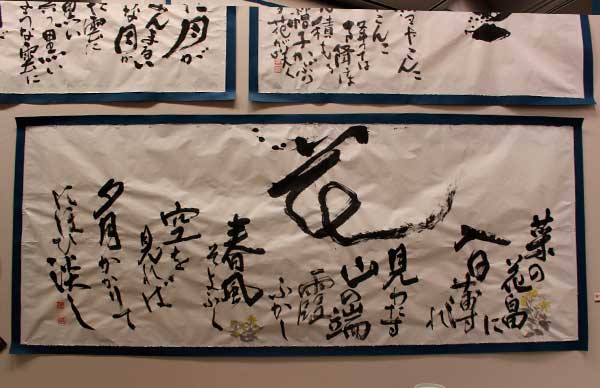 やこんこ
こんこ
積もる
帽子かぶり
花が咲く
に月が
まんまるい
な月が
雲に
黒い
黒い
ような雲に
花
菜の
花畠に
入日薄れ
見わたす
山の端
霞
ふかし
春風
そよふく
空を
見れば
夕月かかりて
にほひ淡し